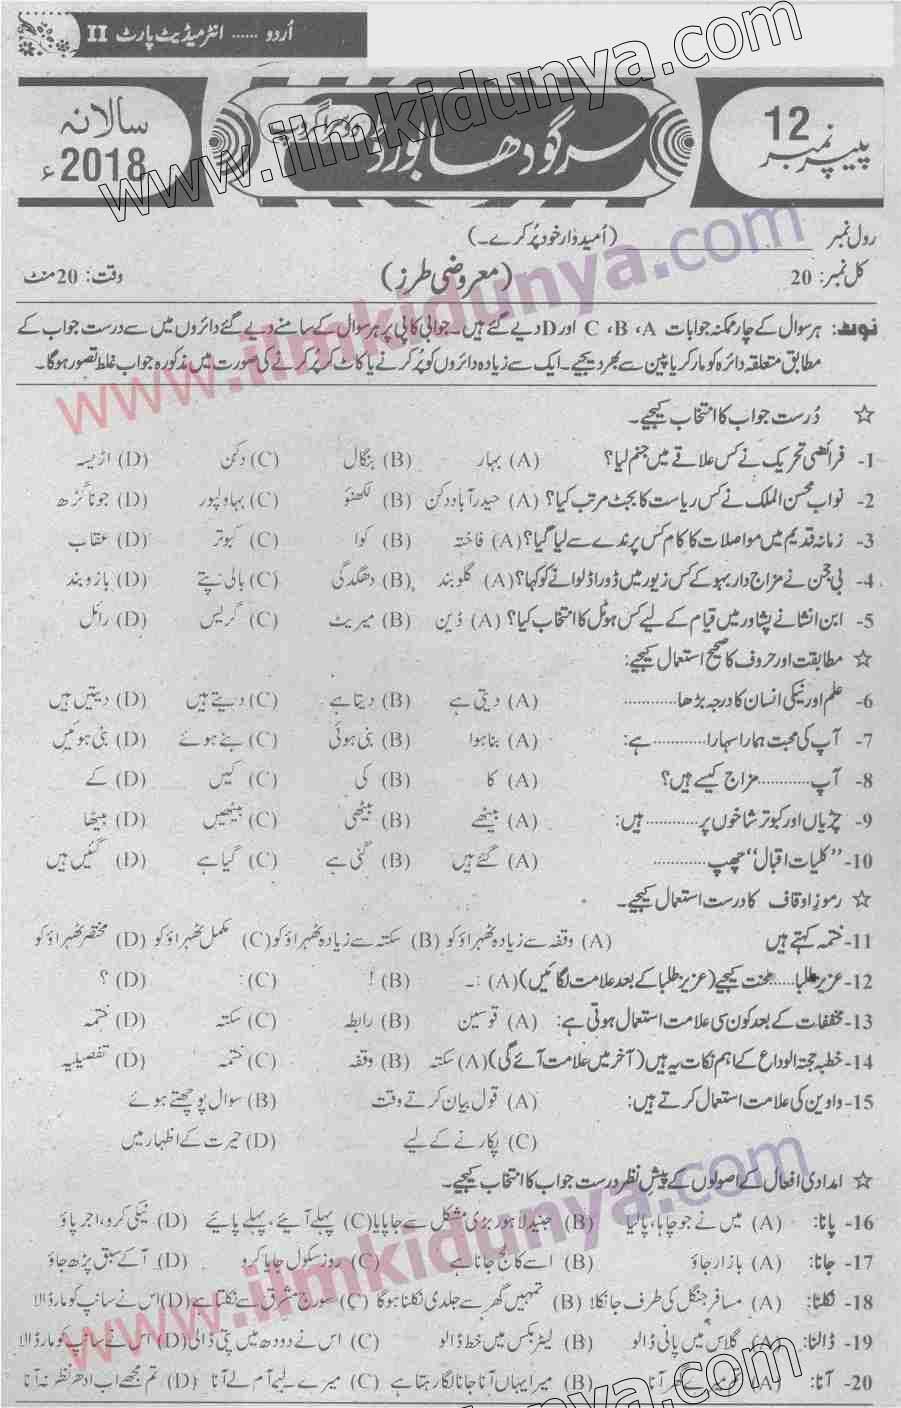 اُردو ...... انٹرمیڈیٹ پارٹ II
پیپر نمبر 12
سرگودھا بورڈ
دوسرا گروپ
سالانہ 2018ء
www.ilmkidunya.com
رول نمبر ____________ (اُمیدوار خود پُر کرے۔)
کل نمبر: 20 (معروضی طرز) وقت: 20 منٹ
نوٹ: ہر سوال کے چار ممکنہ جوابات A، B، C اور D دیے گئے ہیں۔ جوابی کاپی پر ہر سوال کے سامنے دیے گئے دائروں میں سے درست جواب کے
مطابق متعلقہ دائرہ کو مارکر یا پین سے بھر دیجیے۔ ایک سے زیادہ دائروں کو پُر کرنے یا کاٹ کر پُر کرنے کی صورت میں مذکورہ جواب غلط تصور ہوگا۔
www.ilmkidunya.com
☆ دُرست جواب کا انتخاب کیجیے۔
1- فرائضی تحریک نے کس علاقے میں جنم لیا؟ (A) بہار (B) بنگال (C) دکن (D) اڑیسہ
2- نواب محسن الملک نے کس ریاست کا بجٹ مرتب کیا؟ (A) حیدرآباد دکن (B) لکھنؤ (C) بہاولپور (D) جوناگڑھ
3- زمانہ قدیم میں مواصلات کا کام کس پرندے سے لیا گیا؟ (A) فاختہ (B) کوا (C) کبوتر (D) عقاب
4- بی جمن نے مزاج دار بہو کے کس زیور میں ڈورا ڈلوانے کو کہا؟ (A) گلوبند (B) دھگدگی (C) بالی پتے (D) بازوبند
5- ابن انشا نے پشاور میں قیام کے لیے کس ہوٹل کا انتخاب کیا؟ (A) ڈین (B) میریٹ (C) گریس (D) رائل
☆ مطابقت اور حروف کا صحیح استعمال کیجیے:
6- علم اور نیکی انسان کا درجہ بڑھا............ (A) دیتی ہے (B) دیتا ہے (C) دیتے ہیں (D) دیتیں ہیں
7- آپ کی محبت ہمارا سہارا............ ہے: (A) بنا ہوا (B) بنی ہوئی (C) بنے ہوئے (D) بنی ہوئیں
8- آپ............ مزاج کیسے ہیں؟ (A) کا (B) کی (C) کیں (D) کے
9- چڑیاں اور کبوتر شاخوں پر............ ہیں: (A) بیٹھے (B) بیٹھی (C) بیٹھیں (D) بیٹھا
10- ’’کلیات اقبال‘‘ چھپ............ (A) گئے ہیں (B) گئی ہے (C) گیا ہے (D) گئیں ہیں
☆ رموز اوقاف کا درست استعمال کیجیے۔
11- ختمہ کہتے ہیں (A) وقفہ سے زیادہ ٹھہراؤ کو (B) سکتہ سے زیادہ ٹھہراؤ کو (C) مکمل ٹھہراؤ کو (D) مختصر ٹھہراؤ کو
12- عزیز طلبا......محنت کیجیے (عزیز طلبا کے بعد علامت لگائیں) (A) :۔ (B) ! (C) : (D) ؟
13- مخففات کے بعد کون سی علامت استعمال ہوتی ہے: (A) قوسین (B) رابطہ (C) سکتہ (D) ختمہ
14- خطبہ حجۃ الوداع کے اہم نکات یہ ہیں (آخر میں علامت آئے گی) (A) سکتہ (B) وقفہ (C) ختمہ (D) تفصیلیہ
15- واوین کی علامت استعمال کرتے ہیں: (A) قول بیان کرتے وقت (B) سوال پوچھتے ہوئے
(C) پکارنے کے لیے (D) حیرت کے اظہار میں
☆ امدادی افعال کے اصولوں کے پیش نظر درست جواب کا انتخاب کیجیے۔
16- پانا: (A) میں نے جو چاہا، پا لیا (B) جنید لاہور بڑی مشکل سے جا پایا (C) پہلے آئیے، پہلے پائیے (D) نیکی کرو، اجر پاؤ
17- جانا: (A) بازار جاؤ (B) اسے کالج جانا ہے (C) روز سکول جایا کرو (D) آکے سبق پڑھ جاؤ
www.ilmkidunya.com
18- نکلنا: (A) مسافر جنگل کی طرف جا نکلا (B) تمہیں گھر سے جلدی نکلنا ہوگا (C) سورج مشرق سے نکلتا ہے (D) اس نے سانپ کو مار ڈالا
19- ڈالنا: (A) گلاس میں پانی ڈالو (B) لیٹر بکس میں خط ڈالو (C) اس نے دودھ میں پتی ڈالی (D) اس نے سانپ کو مار ڈالا
20- آنا: (A) تم میرے گھر آنا (B) میرا یہاں آنا جانا لگا رہتا ہے (C) میرے لیے آم لے آنا (D) تم مجھے اب ادھر نظر نہ آنا